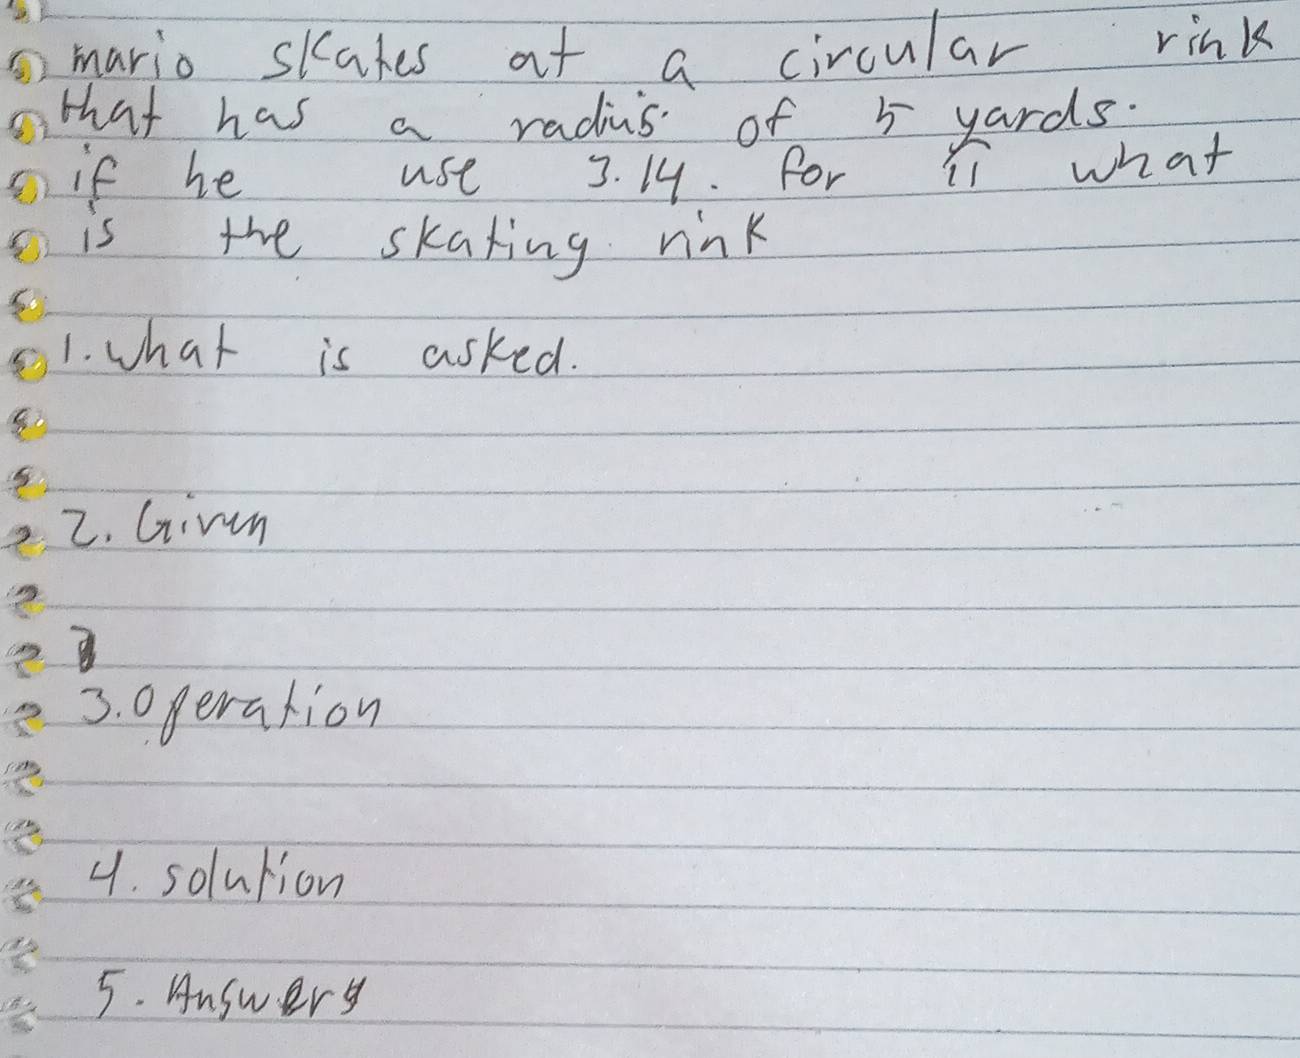 mario skates at a circular rink
that has a radius of 5 yards.
if he use 3.14. for π what
is the skating rink
1. what is asked.
2. Given
3. Operation
4. solution
5. Answer